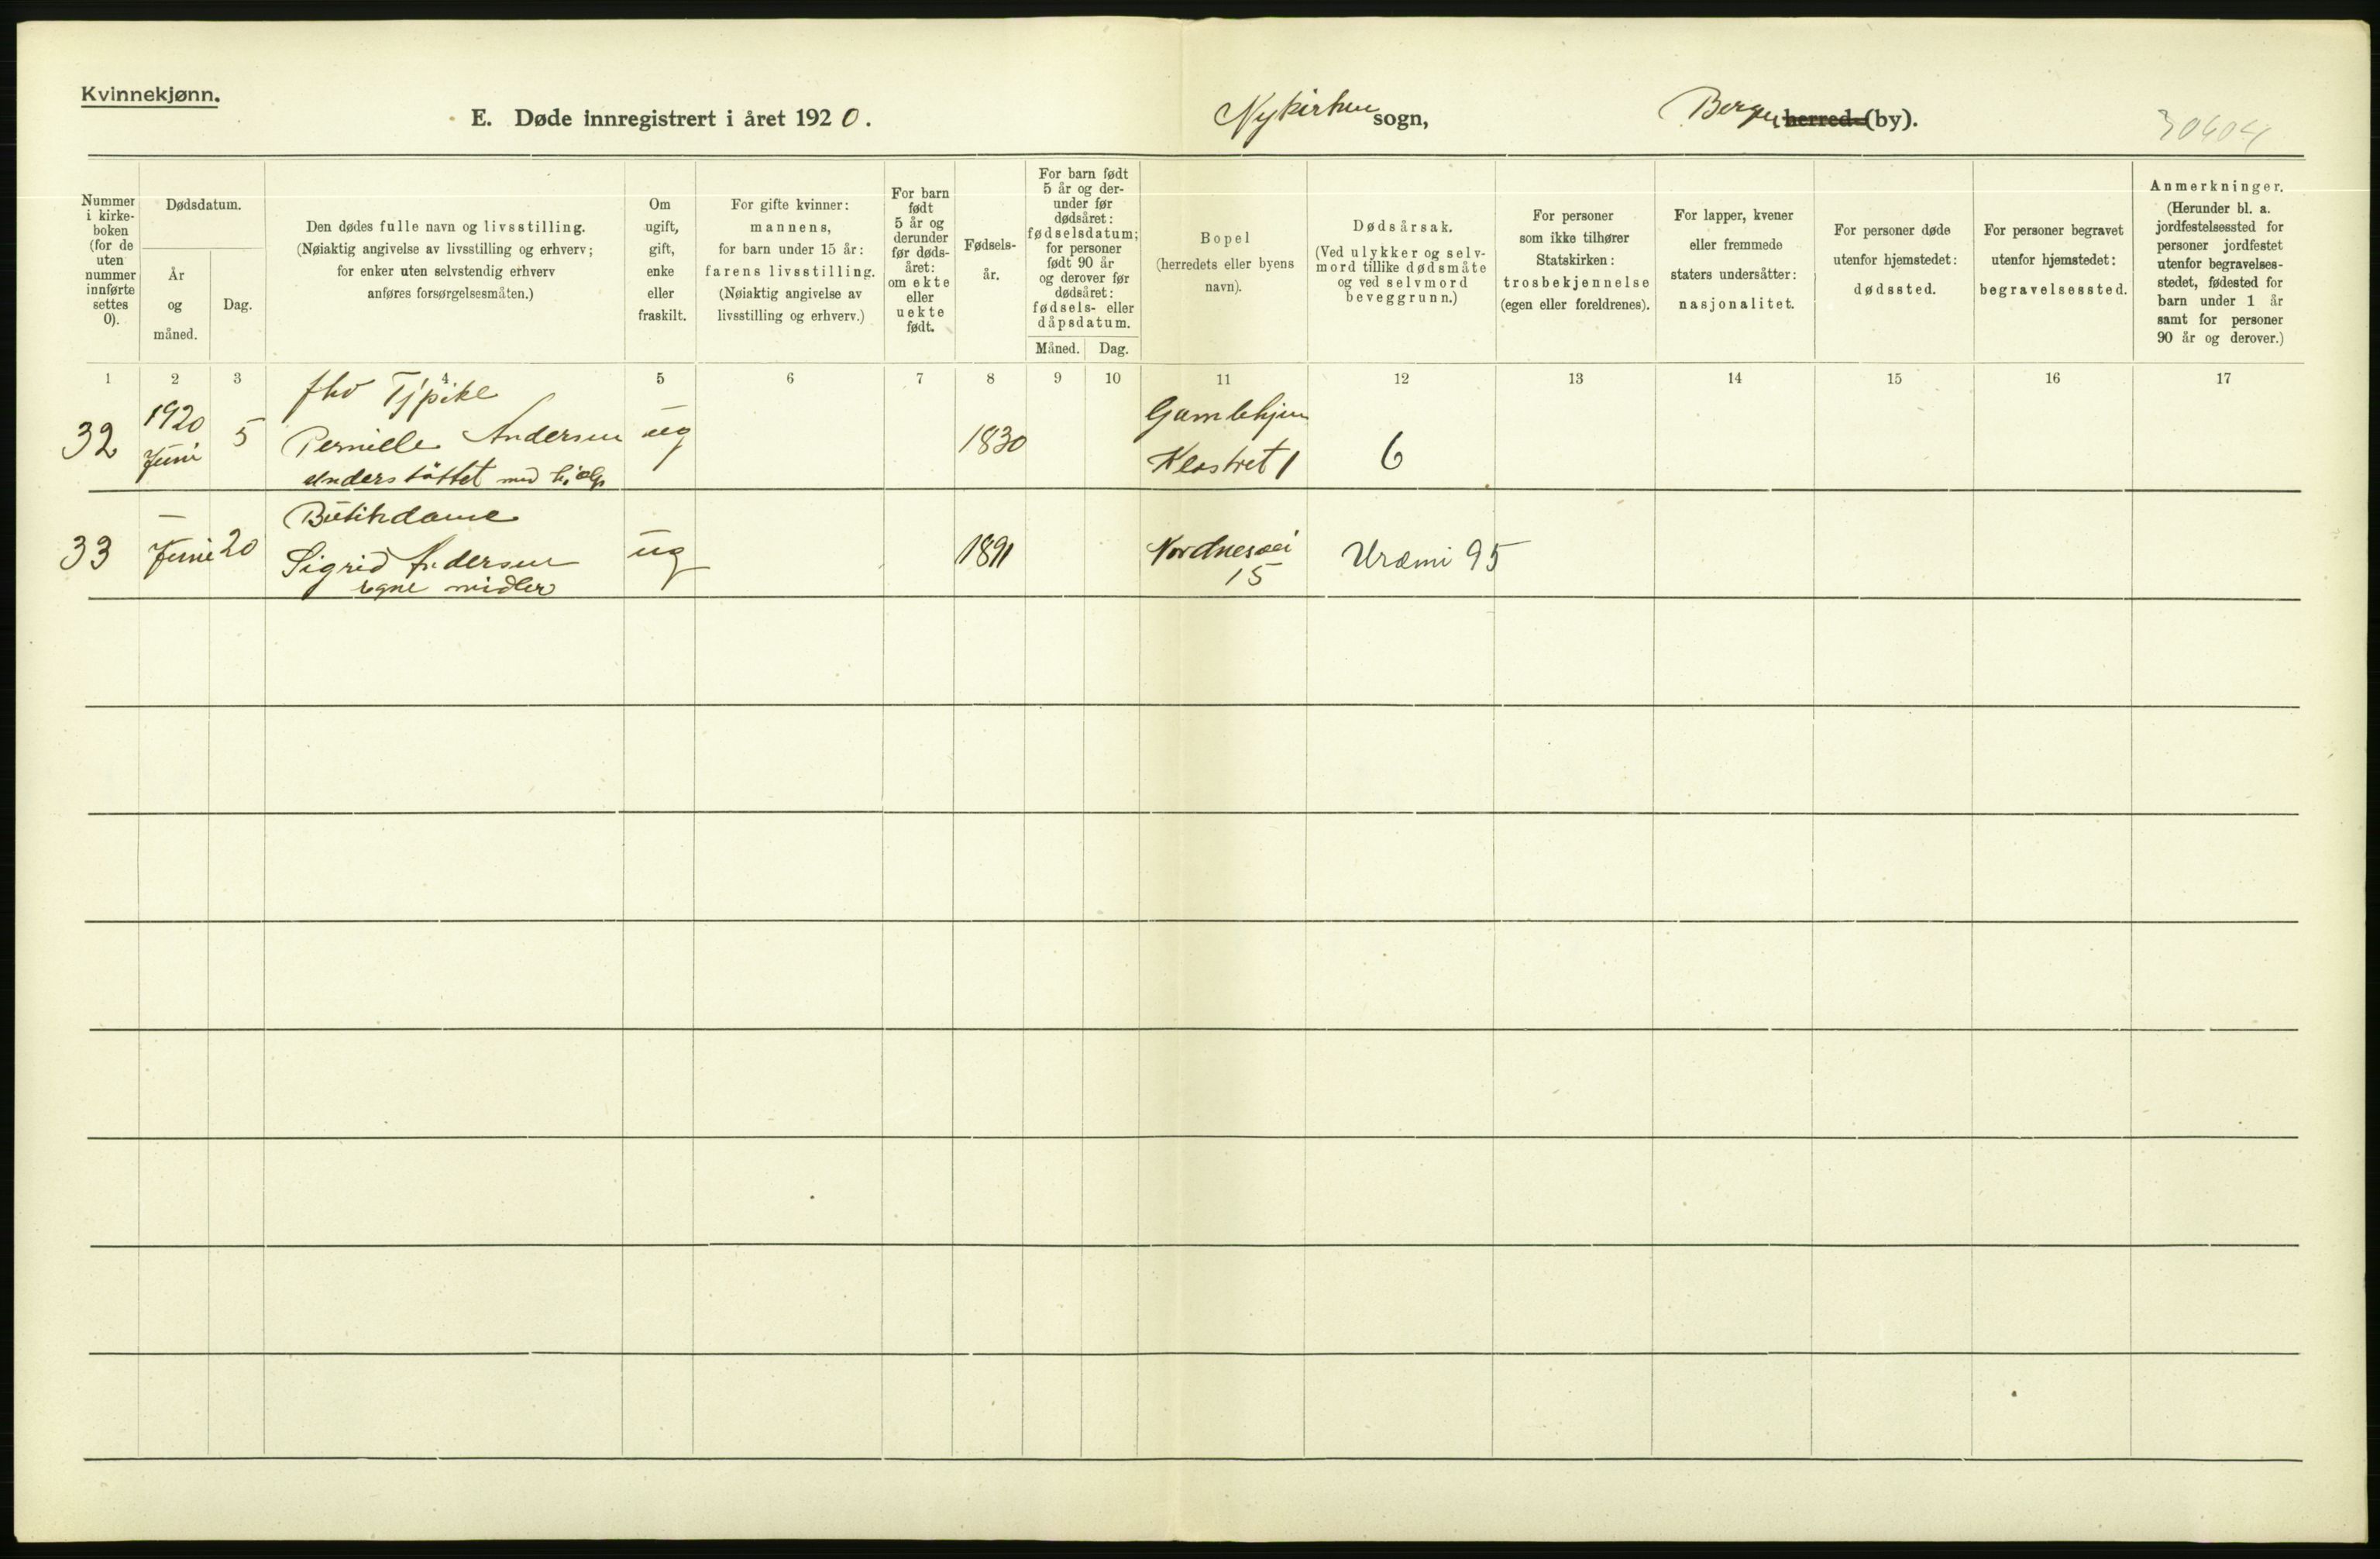 Kvinnekjønn.
E. Døde innregistrert i året 1920.
Nykirken sogn,
Bergen herred (by).
Nummer i kirkeboken (for de uten nummer innførte settes 0).
Dødsdatum.
År og måned.
Dag.
Den dødes fulle navn og livsstilling.
(Nøiaktig angivelse av livsstilling og erhverv;
for enker uten selvstendig erhverv
anføres forsørgelsesmåten.)
Om
ugift,
gift,
enke
eller
fraskilt.
For gifte kvinner:
mannens,
for barn under 15 år:
farens livsstilling.
(Nøiaktig angivelse av
livsstilling og erhverv.)
For barn
født
5 år og
derunder
før døds-
året:
om ekte
eller
uekte
født.
Fødsels-
år.
For barn født
5 år og der-
under før
dødsåret:
fødselsdatum;
for personer
født 90 år
og derover før
dødsåret:
fødsels- eller
dåpsdatum.
Måned.
Dag.
Bopel
(herredets eller byens
navn).
Dødsårsak.
(Ved ulykker og selv-
mord tillike dødsmåte
og ved selvmord
beveggrunn.)
For personer
som ikke tilhører
Statskirken:
trosbekjennelse
(egen eller foreldrenes).
For lapper, kvener
eller fremmede
staters undersåtter:
nasjonalitet.
For personer døde
utenfor hjemstedet:
dødssted.
For personer begravet
utenfor hjemstedet:
begravelsessted.
Anmerkninger.
(Herunder bl. a.
jordfestelsessted for
personer jordfestet
utenfor begravelses-
stedet, fødested for
barn under 1 år
samt for personer
90 år og derover.)
1 2 3 4 5 6 7 8 9 10 11 12 13 14 15 16 17
fhv Tjpike
32 1920 Juni 5 Pernille Andersen ug 1830 Gamlehjem Klostret 1 6
understöttet med
Butikdame
33 — Juni 20 Sigrid Andersen ug 1891 Nordnesvei 15 Uræmi 95
egne midler